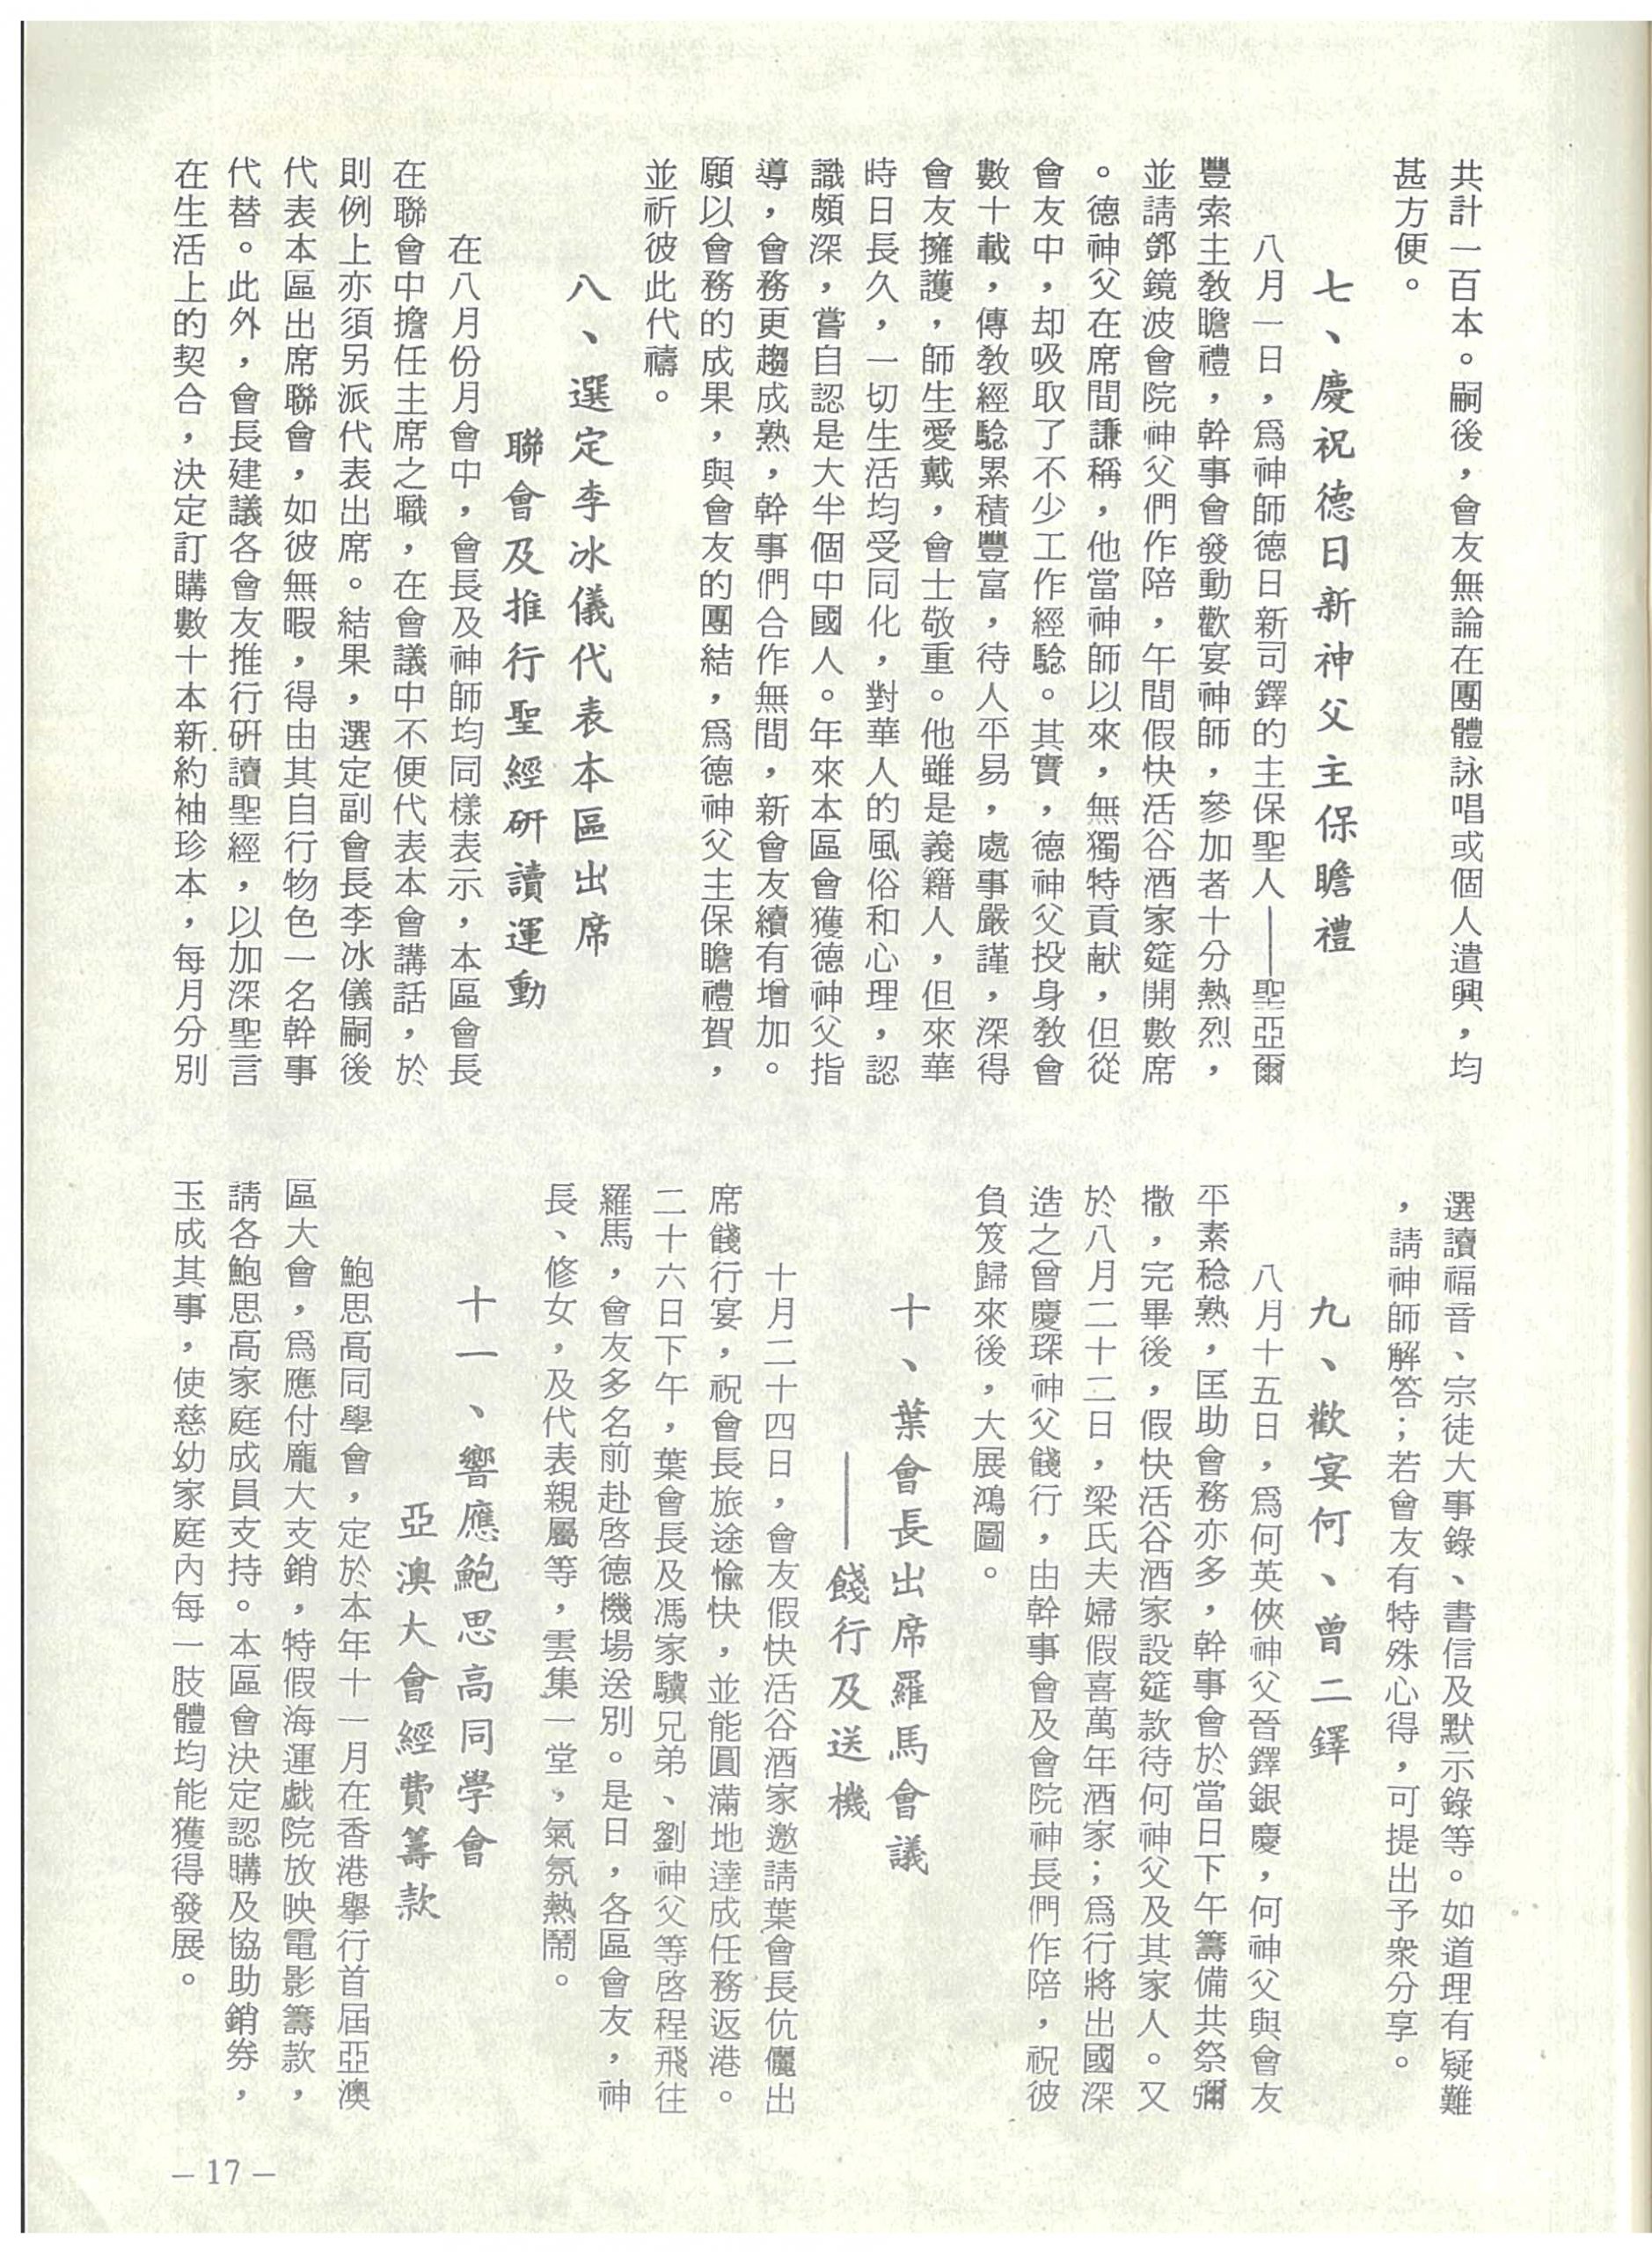 共計一百本。嗣後，會友無論在團體詠唱或個人遣興，均
甚方便。
七、慶祝德日新神父主保瞻禮
八月一日，爲神師德日新司鐸的主保聖人——聖亞爾
豐索主教瞻禮，幹事會發動歡宴神師，參加者十分熱烈，
並請鄧鏡波會院神父們作陪，午間假快活谷酒家筵開數席
。德神父在席間謙稱，他當神師以來，無獨特貢献，但從
會友中，却吸取了不少工作經驗。其實，德神父投身教會
數十載，傳教經驗累積豐富，待人平易，處事嚴謹，深得
會友擁護，師生愛戴，會士敬重。他雖是義籍人，但來華
時日長久，一切生活均受同化，對華人的風俗和心理，認
識頗深，嘗自認是大半個中國人。年來本區會獲德神父指
導，會務更趨成熟，幹事們合作無間，新會友續有增加。
願以會務的成果，與會友的團結，爲德神父主保瞻禮賀，
並祈彼此代禱。
八、選定李冰儀代表本區出席
聯會及推行聖經研讀運動
在八月份月會中，會長及神師均同樣表示，本區會長
在聯會中擔任主席之職，在會議中不便代表本會講話，於
則例上亦須另派代表出席。結果，選定副會長李冰儀嗣後
代表本區出席聯會，如彼無暇，得由其自行物色一名幹事
代替。此外，會長建議各會友推行研讀聖經，以加深聖言
在生活上的契合，決定訂購數十本新約袖珍本，每月分別
選讀福音、宗徒大事錄、書信及默示錄等。如道理有疑難
，請神師解答；若會友有特殊心得，可提出予衆分享。
九、歡宴何、曾二鐸
八月十五日，爲何英俠神父晉鐸銀慶，何神父與會友
平素稔熟，匡助會務亦多，幹事會於當日下午籌備共祭彌
撒，完畢後，假快活谷酒家設筵款待何神父及其家人。又
於八月二十二日，梁氏夫婦假喜萬年酒家；爲行將出國深
造之曾慶琛神父餞行，由幹事會及會院神長們作陪，祝彼
負笈歸來後，大展鴻圖。
十、葉會長出席羅馬會議
——餞行及送機
十月二十四日，會友假快活谷酒家邀請葉會長伉儷出
席餞行宴，祝會長旅途愉快，並能圓滿地達成任務返港。
二十六日下午，葉會長及馮家驥兄弟、劉神父等啓程飛往
羅馬，會友多名前赴啓德機場送別。是日，各區會友，神
長、修女，及代表親屬等，雲集一堂，氣氛熱鬧。
十一、響應鮑思高同學會
亞澳大會經費籌款
鮑思高同學會，定於本年十一月在香港舉行首屆亞澳
區大會，爲應付龐大支銷，特假海運戲院放映電影籌款，
請各鮑思高家庭成員支持。本區會決定認購及協助銷券，
玉成其事，使慈幼家庭內每一肢體均能獲得發展。
— 17 —